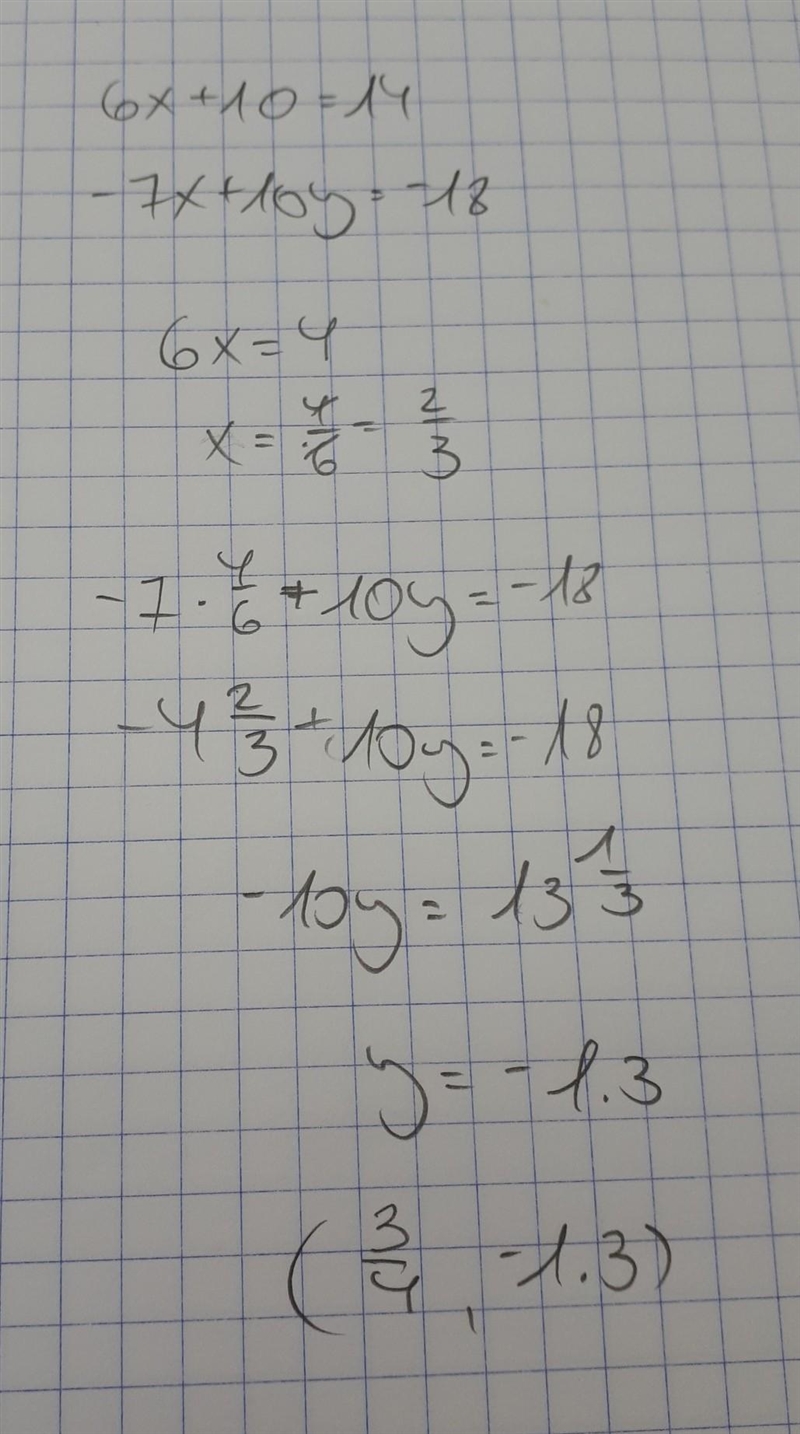 6x+10=14
-7x+10y=-18
6x=4
x=4/6=2/3
-7·4/6+10y=-18
-4 2/3+10y=-18
-10y=13 1/3
y=-1.3
(3/4, -1.3)